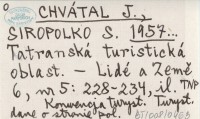 CHVÁTAL J.,
SIROPOLKO S. 1957...
Tatranská turistická
oblast. – Lidé a Země
6, nr 5: 228-234, il. TNP
Konvencja turyst. Turyst.
dane o stronie pol.